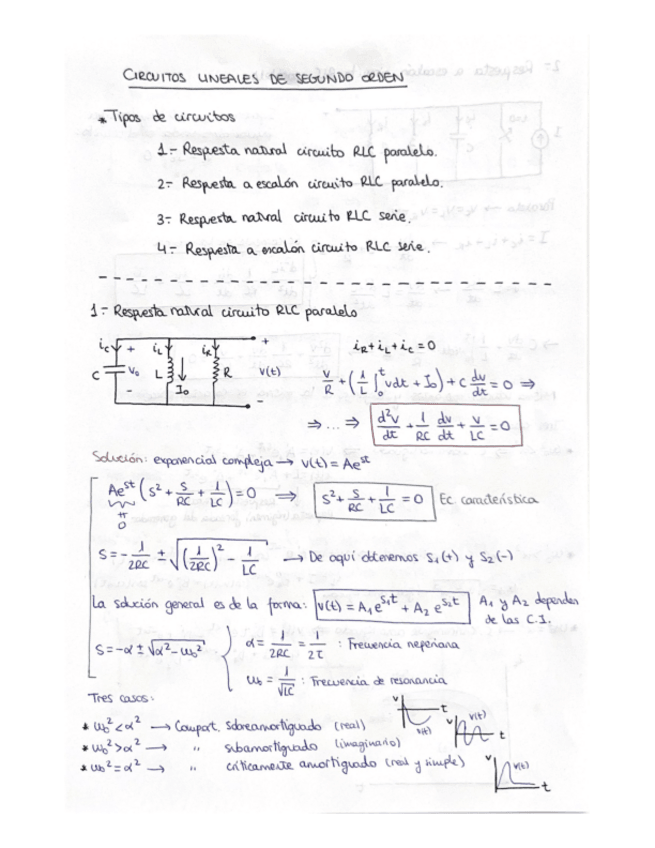 CIRCUITOS LINEALES DE SEGUNDO ORDEN
* Tipos de circuitos
1.- Respuesta natural circuito RLC paralelo.
2.- Respuesta a escalón circuito RLC paralelo.
3.- Respuesta natural circuito RLC serie.
4.- Respuesta a escalón circuito RLC serie.
1.- Respuesta natural circuito RLC paralelo
ic + iL iR + iR + iL + ic = 0
C V₀ L I₀ R v(t) V/R + (1/L ∫₀ᵗ vdt + I₀) + C dv/dt = 0 ⇒
- -
⇒ ... ⇒ d²v/dt + 1/RC dv/dt + v/LC = 0
Solución: exponencial compleja → v(t) = Ae^st
Ae^st (s² + s/RC + 1/LC) = 0 ⇒ s² + s/RC + 1/LC = 0 Ec. característica
≠
0
S = -1/2RC ± √((1/2RC)² - 1/LC) → De aquí obtenemos S₁(+) y S₂(-)
La solución general es de la forma: v(t) = A₁e^s₁t + A₂e^s₂t A₁ y A₂ dependen
de las C.I.
S = -α ± √(α² - ω₀²) α = 1/2RC = 1/2τ : Frecuencia neperiana
ω₀ = 1/√LC : Frecuencia de resonancia
Tres casos:
* ω₀² < α² → Comport. sobreamortiguado (real) v t v(t)
* ω₀² > α² → " subamortiguado (imaginario) v v(t) t
* ω₀² = α² → " críticamente amortiguado (real y simple) v v(t) t